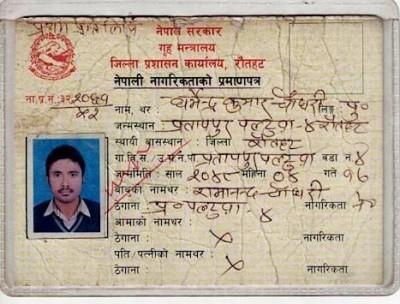 नेपाल सरकार
गृह मन्त्रालय
जिल्ला प्रशासन कार्यालय, रौतहट
नेपाली नागरिकताको प्रमाणपत्र
ना.प्र.नं.
नाम, थर : कुमार चौधरी लिङ्ग पु०
जन्मस्थान : प्रतापपुर पल्टुवा - ४ रौतहट
स्थायी वासस्थान : जिल्ला रौतहट
गा.वि.स. प्रतापपुर पल्टुवा वडा नं. ४
जन्ममिति : साल महिना ०४ गते १६
बाबुको नामथर : रामानन्द चौधरी
ठेगाना : प्र० पल्टुवा ४ नागरिकता ने०
आमाको नामथर :
ठेगाना : x नागरिकता
पति/पत्नीको नामथर :
ठेगाना : x नागरिकता